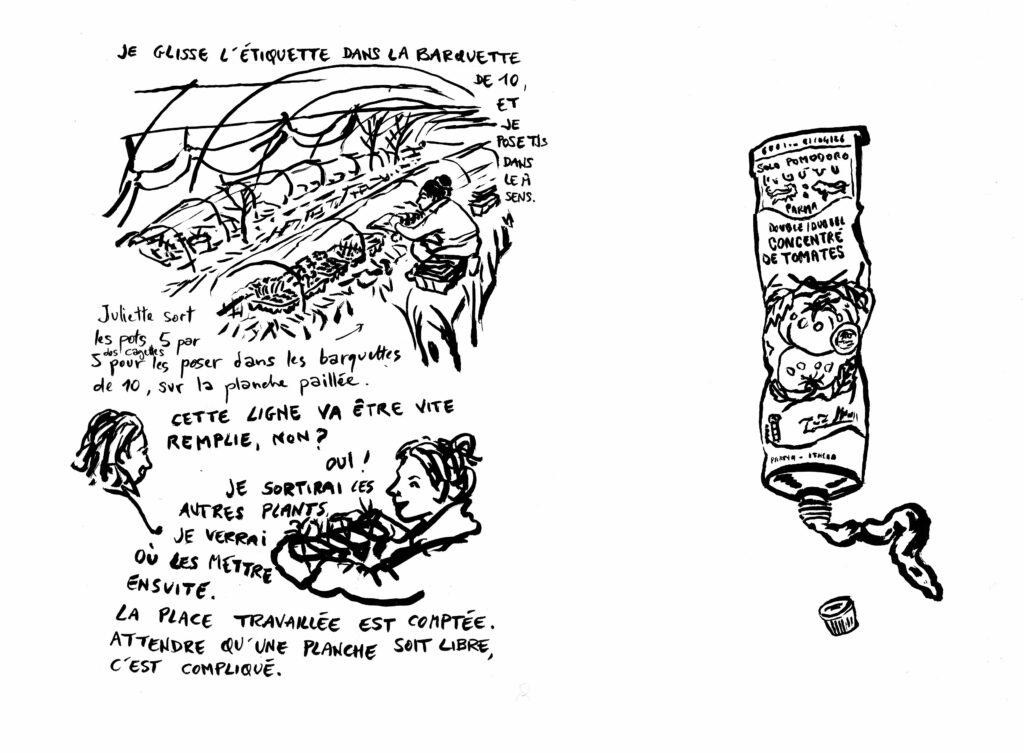 JE GLISSE L'ÉTIQUETTE DANS LA BARQUETTE
DE 10,
ET
JE
POSE TJS
DANS
LE À
SENS.
Juliette sort
les pots 5 par
des cagettes
5 pour les poser dans les barquettes
de 10, sur la planche paillée.
CETTE LIGNE VA ÊTRE VITE
REMPLIE, NON?
OUI!
JE SORTIRAI LES
AUTRES PLANTS,
JE VERRAI
OÙ LES METTRE
ENSUITE.
LA PLACE TRAVAILLÉE EST COMPTÉE.
ATTENDRE QU'UNE PLANCHE SOIT LIBRE,
C'EST COMPLIQUÉ.
SOLO POMODORO
PARMA
DOUBLE/DUBBEL
CONCENTRE
DE TOMATES
PARMA - ITALIA